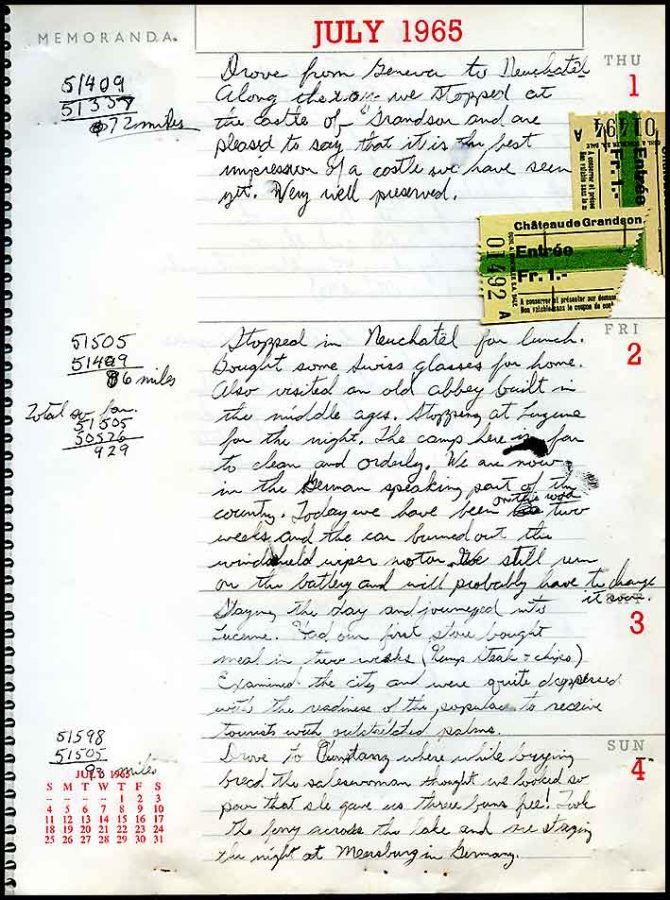 MEMORANDA
JULY 1965
THU
1
51409
51337
72 miles
Drove from Geneva to Neuchatel
Along the way we stopped at
the castle of Grandson and are
pleased to say that it is the best
impression of a castle we have seen
yet. Very well preserved.
01493 A
Entrée
Fr. 1.-
Château de Grandson
Entrée
Fr. 1.-
01492 A
A conserver et présenter sur
Non valable sans le coupon de
FRI
2
51505
51409
96 miles
Total so far
51505
50576
929
Stopped in Neuchatel for lunch.
Bought some Swiss glasses for home.
Also visited an old abbey built in
the middle ages. Stopping at Lucerne
for the night. The camp here is far
to clean and orderly. We are now
in the German speaking part of the
country. Today we have been on the road two
weeks and the car burned out the
windshield wiper motor. We still run
on the battery and will probably have to change
it soon.
3
Staying the day and journeyed into
Lucerne. Had our first store bought
meal in two weeks (Rump Steak + chips)
Examined the city and were quite depressed
with the readiness of the populace to receive
tourists with outstretched palms.
SUN
4
51598
51505
93 miles
Drove to Constanz where while buying
bread the saleswoman thought we looked so
poor that she gave us three buns free! Took
the ferry across the lake and are staying
the night at Meersburg in Germany.
JULY 1965
S M T W T F S
- - - - 1 2 3
4 5 6 7 8 9 10
11 12 13 14 15 16 17
18 19 20 21 22 23 24
25 26 27 28 29 30 31